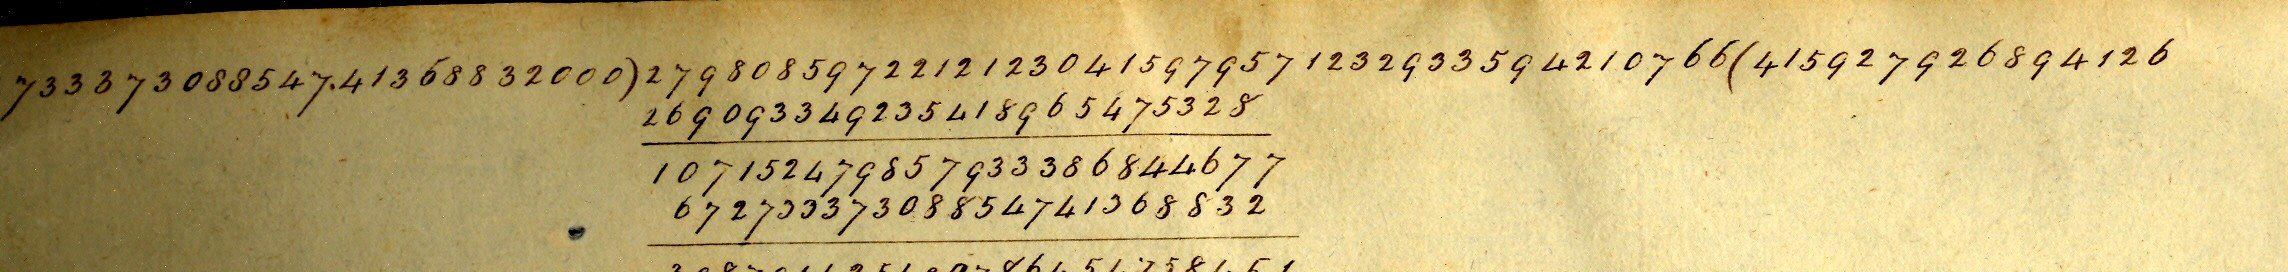 733373088547.41368832000)27980859722121230415979571232933594210766(415927926894126
269093349235418965475328
107152479857933386844677
67273337308854741368832